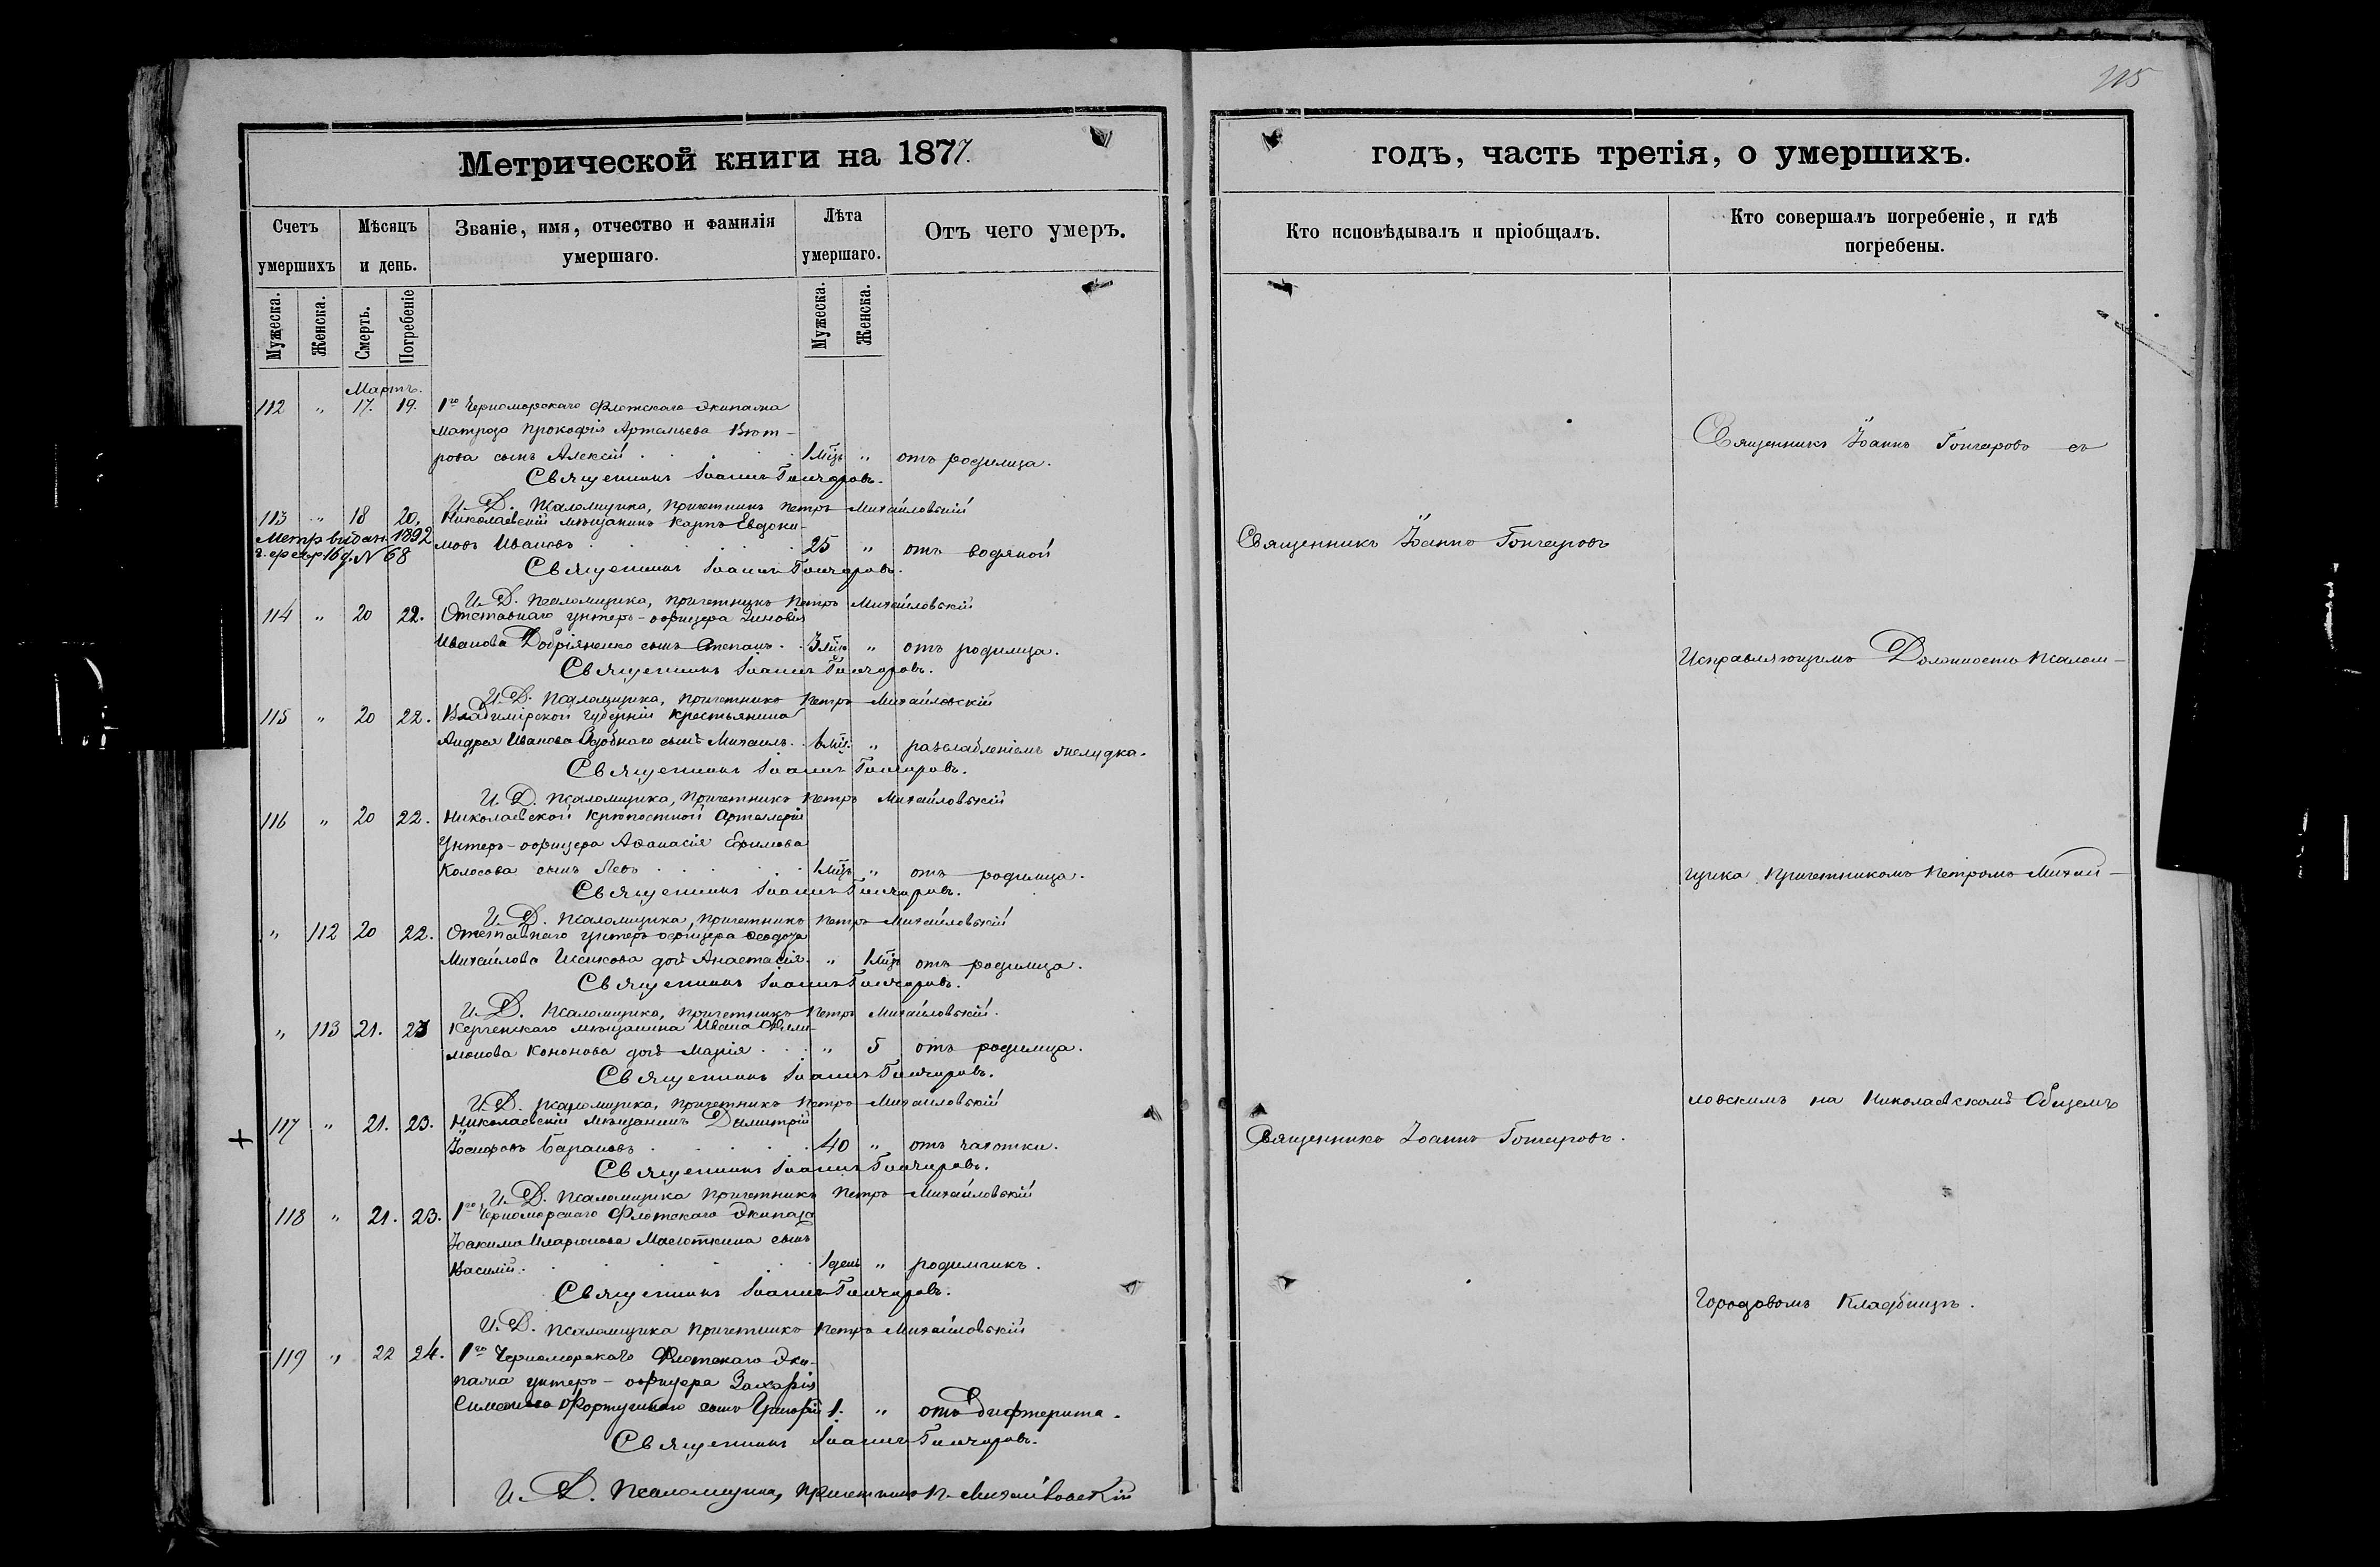 115
Метрической книги на 1877.
Счетъ умершихъ
Мѣсяцъ и день.
Званіе, имя, отчество и фамилія умершаго.
Лѣта умершаго.
Отъ чего умеръ.
Мужеска.
Женска.
Смерть.
Погребеніе
Мужеска.
Женска.
Мартъ.
112 " 17. 19. 1го Черноморскаго Флотскаго Экипажа
матроза Прокофія Артемьева
рова сынъ Алексій 1 мѣц " отъ родимца.
Священникъ Іоаннъ Гончаровъ.
И. Д. Псаломщика, Причетникъ Петръ Михайловскій
113 " 18 20, Николаевскій мѣщанинъ Карпъ Евдоки-
мовъ Ивановъ 25 " отъ водяной
Метр видан. 1892
16 д. N 68
Священникъ Іоаннъ Гончаровъ.
И. Д. Псаломщика, Причетникъ Петръ Михайловскій
114 " 20 22. Отставнаго унтеръ-офицера Зиновія
Иванова Добріяненко сынъ Степанъ 3 " отъ родимца.
Священникъ Іоаннъ Гончаровъ.
И. Д. Псаломщика, Причетникъ Петръ Михайловскій
115 " 20 22. Владимірской губерніи крестьянина
Андрея Иванова сынъ Михаилъ " разслабленіемъ желудка.
Священникъ Іоаннъ Гончаровъ.
И. Д. Псаломщика, Причетникъ Петръ Михайловскій
116 " 20 22. Николаевской Крѣпостной Артиллеріи
Унтеръ-офицера Аѳанасія Ефимова
Колосова сынъ Левъ 1 мѣц " отъ родимца.
Священникъ Іоаннъ Гончаровъ.
И. Д. Псаломщика, Причетникъ Петръ Михайловскій
" 112 20 22. Отставнаго унтеръ офицера
Михайлова дочь Анастасія " 1 мѣц отъ родимца.
Священникъ Іоаннъ Гончаровъ.
И. Д. Псаломщика, Причетникъ Петръ Михайловскій.
" 113 21. 23 Керченскаго мѣщанина Ивана Фили-
монова Кононова дочь Марія " 5 отъ родимца.
Священникъ Іоаннъ Гончаровъ.
И. Д. Псаломщика, Причетникъ Петръ Михайловскій
117 " 21. 23. Николаевскій Мѣщанинъ Димитрій
Іосифовъ Барановъ 40 " отъ чахотки.
Священникъ Іоаннъ Гончаровъ.
И. Д. Псаломщика Причетникъ Петръ Михайловскій
118 " 21. 23. 1го Черноморскаго Флотскаго Экипажа
Іоакима Иларіонова сынъ
Василій 1 день " родимчикъ.
Священникъ Іоаннъ Гончаровъ.
И. Д. Псаломщика Причетникъ Петръ Михайловскій
119 " 22 24. 1го Черноморскаго Флотскаго Эки-
пажа унтеръ-офицера Захарія
сынъ Григорій 1. " отъ дифтерита.
Священникъ Іоаннъ Гончаровъ.
И. Д. Псаломщика, Причетникъ П. Михайловскій
годъ, часть третія, о умершихъ.
Кто исповѣдывалъ и пріобщалъ.
Кто совершалъ погребеніе, и гдѣ погребены.
Священникъ Іоаннъ Гончаровъ
Священникъ Іоаннъ Гончаровъ.
Священникъ Іоаннъ Гончаровъ съ
Исправляющимъ Должность Псалом-
щика Причетникомъ Петромъ Михай-
ловскимъ на Николаевскомъ Общемъ
Городовомъ Кладбищѣ.